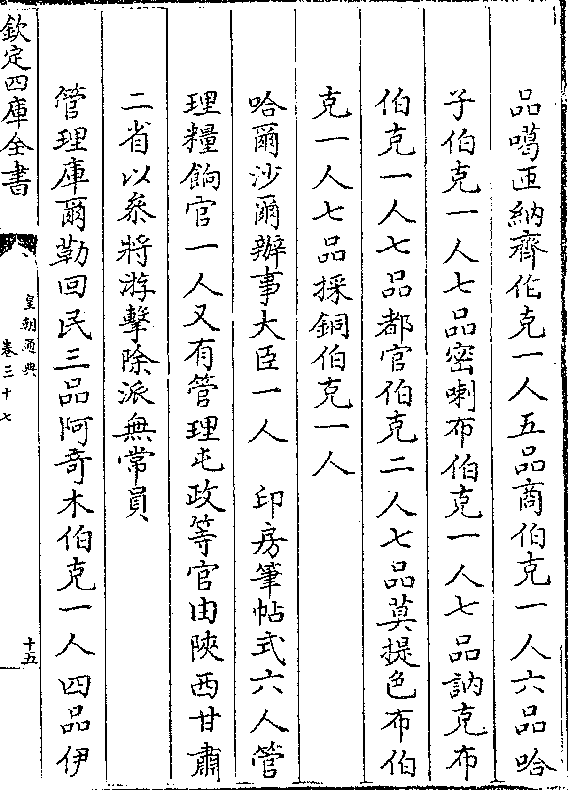 品噶匝納齊伯克一人五品商伯克一人六品哈
子伯克一人七品密喇布伯克一人七品訥克布
伯克一人七品都官伯克二人七品莫提色布伯
克一人七品採銅伯克一人
哈爾沙爾辦事大臣一人 印房筆帖式六人管
理糧餉官一人又有管理屯政等官由陝西甘肅
二省以叅將游擊除派無常員
管理庫爾勒回民三品阿奇木伯克一人四品伊
欽定四庫全書
皇朝通典
卷三十七
十五